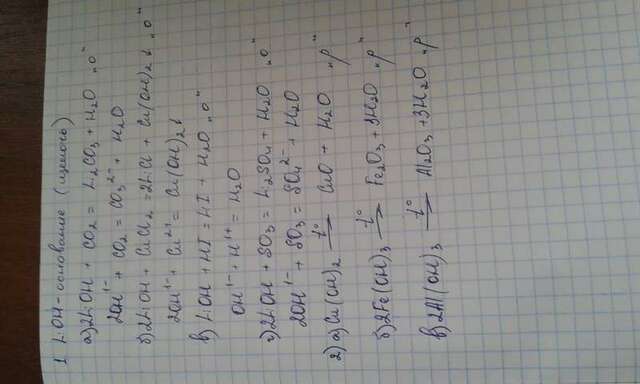 1 LiOH - основание (щелочь)
а) 2LiOH + CO₂ = Li₂CO₃ + H₂O „о"
2OH¹⁻ + CO₂ = CO₃²⁻ + H₂O
б) 2LiOH + CuCl₂ = 2LiCl + Cu(OH)₂↓ „о"
2OH¹⁻ + Cu²⁺ = Cu(OH)₂↓
в) LiOH + HI = LiI + H₂O „о"
OH¹⁻ + H¹⁺ = H₂O
г) 2LiOH + SO₃ = Li₂SO₄ + H₂O „о"
2OH¹⁻ + SO₃ = SO₄²⁻ + H₂O
2) а) Cu(OH)₂ t°→ CuO + H₂O „р"
б) 2Fe(OH)₃ t°→ Fe₂O₃ + 3H₂O „р"
в) 2Al(OH)₃ t°→ Al₂O₃ + 3H₂O „р"